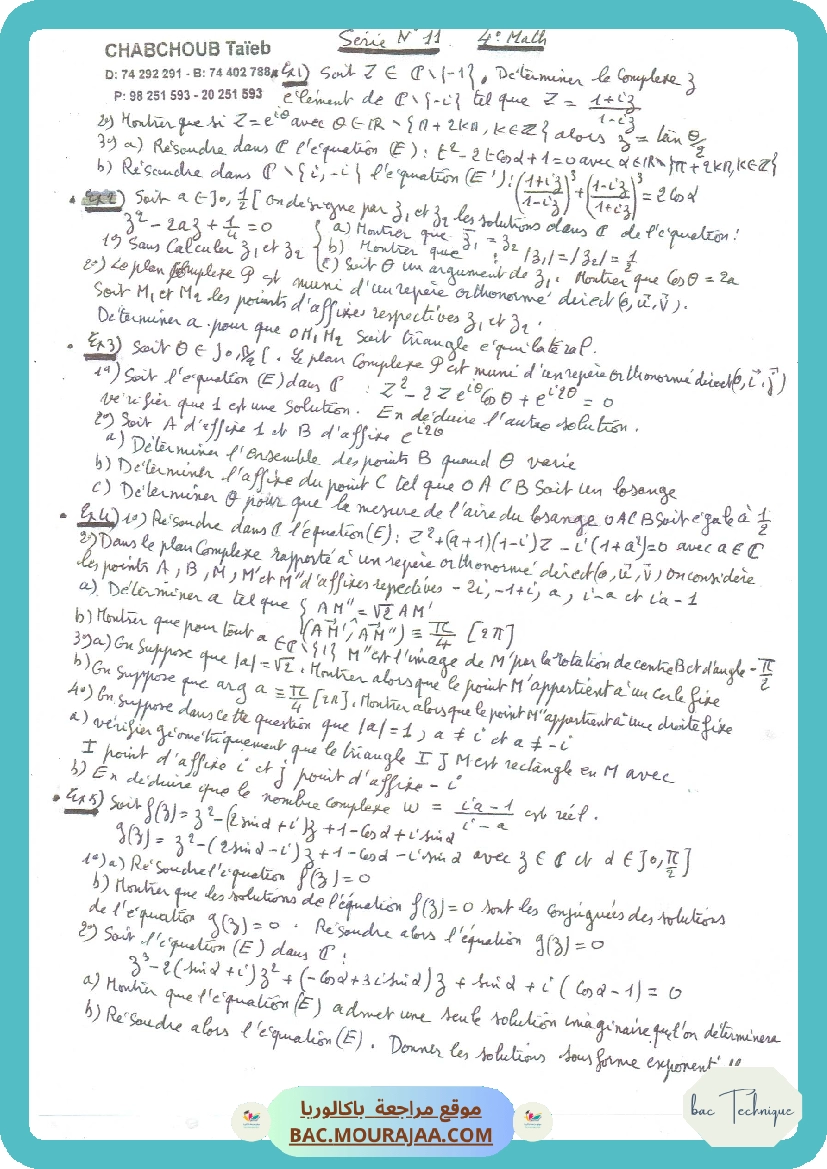 Série N° 11 4e Math
CHABCHOUB Taïeb
D: 74 292 291 - B: 74 402 788
P: 98 251 593 - 20 251 593
Ex1) Soit Z ∈ ℂ\{-1}, Déterminer le complexe z
élément de ℂ\{-i} tel que Z = (1+iz)/(1-iz)
2°) Montrer que si Z = e^{iθ} avec θ ∈ ℝ\{π+2kπ, k∈ℤ} alors z = tan θ/2
3°) a) Résoudre dans ℂ l'équation (E) : t² - 2t cosα + 1 = 0 avec α∈ℝ\{π+2kπ, k∈ℤ}
b) Résoudre dans ℂ\{i, -i} l'équation (E') : ((1+iz)/(1-iz))³ + ((1-iz)/(1+iz))³ = 2 cosα
Ex2) Soit a ∈ ]0, 1/2[ on désigne par z₁ et z₂ les solutions dans ℂ de l'équation :
z² - 2az + 1/4 = 0
1°) Sans Calculer z₁ et z₂ { a) Montrer que z̄₁ = z₂
b) Montrer que : |z₁| = |z₂| = 1/2
c) Soit θ un argument de z₁. Montrer que cosθ = 2a
2°) Le plan complexe P est muni d'un repère orthonormé direct (o, u⃗, v⃗).
Soit M₁ et M₂ les points d'affixes respectives z₁ et z₂.
Déterminer a pour que OM₁M₂ soit triangle équilatéral.
Ex3) Soit θ ∈ ]0, π/2[. Le plan complexe P est muni d'un repère orthonormé direct (o, i⃗, j⃗)
1°) Soit l'équation (E) dans ℂ : Z² - 2Z e^{iθ} cosθ + e^{i2θ} = 0
vérifier que 1 est une solution. En déduire l'autre solution.
2°) Soit A d'affixe 1 et B d'affixe e^{i2θ}
a) Déterminer l'ensemble des points B quand θ varie
b) Déterminer l'affixe du point C tel que OACB soit un losange
c) Déterminer θ pour que la mesure de l'aire du losange OACB soit égale à 1/2
Ex4) 1°) Résoudre dans ℂ l'équation (E) : Z² + (a+1)(1-i)Z - i(1+a²) = 0 avec a ∈ ℂ
2°) Dans le plan complexe rapporté à un repère orthonormé direct (o, u⃗, v⃗) on considère
les points A, B, M, M' et M'' d'affixes respectives -2i, -1+i, a, i-a et ia-1
a) Déterminer a tel que { AM'' = √2 AM'
(AM'⃗, AM''⃗) ≡ π/4 [2π]
b) Montrer que pour tout a ∈ ℂ\{1} M'' est l'image de M' par la rotation de centre B et d'angle -π/2
3°) a) On suppose que |a| = √2. Montrer alors que le point M' appartient à un cercle fixe
b) On suppose que arg a ≡ π/4 [2π]. Montrer alors que le point M'' appartient à une droite fixe
4°) On suppose dans cette question que |a| = 1, a ≠ i et a ≠ -i
a) vérifier géométriquement que le triangle IJM est rectangle en M avec
I point d'affixe i et J point d'affixe -i
b) En déduire que le nombre complexe w = (ia-1)/(i-a) est réel.
Ex5) Soit f(z) = z² - (2sinα + i)z + 1 - cosα + i sinα
g(z) = z² - (2sinα - i)z + 1 - cosα - i sinα avec z ∈ ℂ et α ∈ ]0, π/2]
1°) a) Résoudre l'équation f(z) = 0
b) Montrer que les solutions de l'équation f(z) = 0 sont les conjuguées des solutions
de l'équation g(z) = 0. Résoudre alors l'équation g(z) = 0
2°) Soit l'équation (E) dans ℂ :
z³ - 2(sinα + i)z² + (-cosα + 3i sinα)z + sinα + i(cosα - 1) = 0
a) Montrer que l'équation (E) admet une seule solution imaginaire que l'on déterminera
b) Résoudre alors l'équation (E). Donner les solutions sous forme
موقع مراجعة باكالوريا
BAC.MOURAJAA.COM
bac Technique